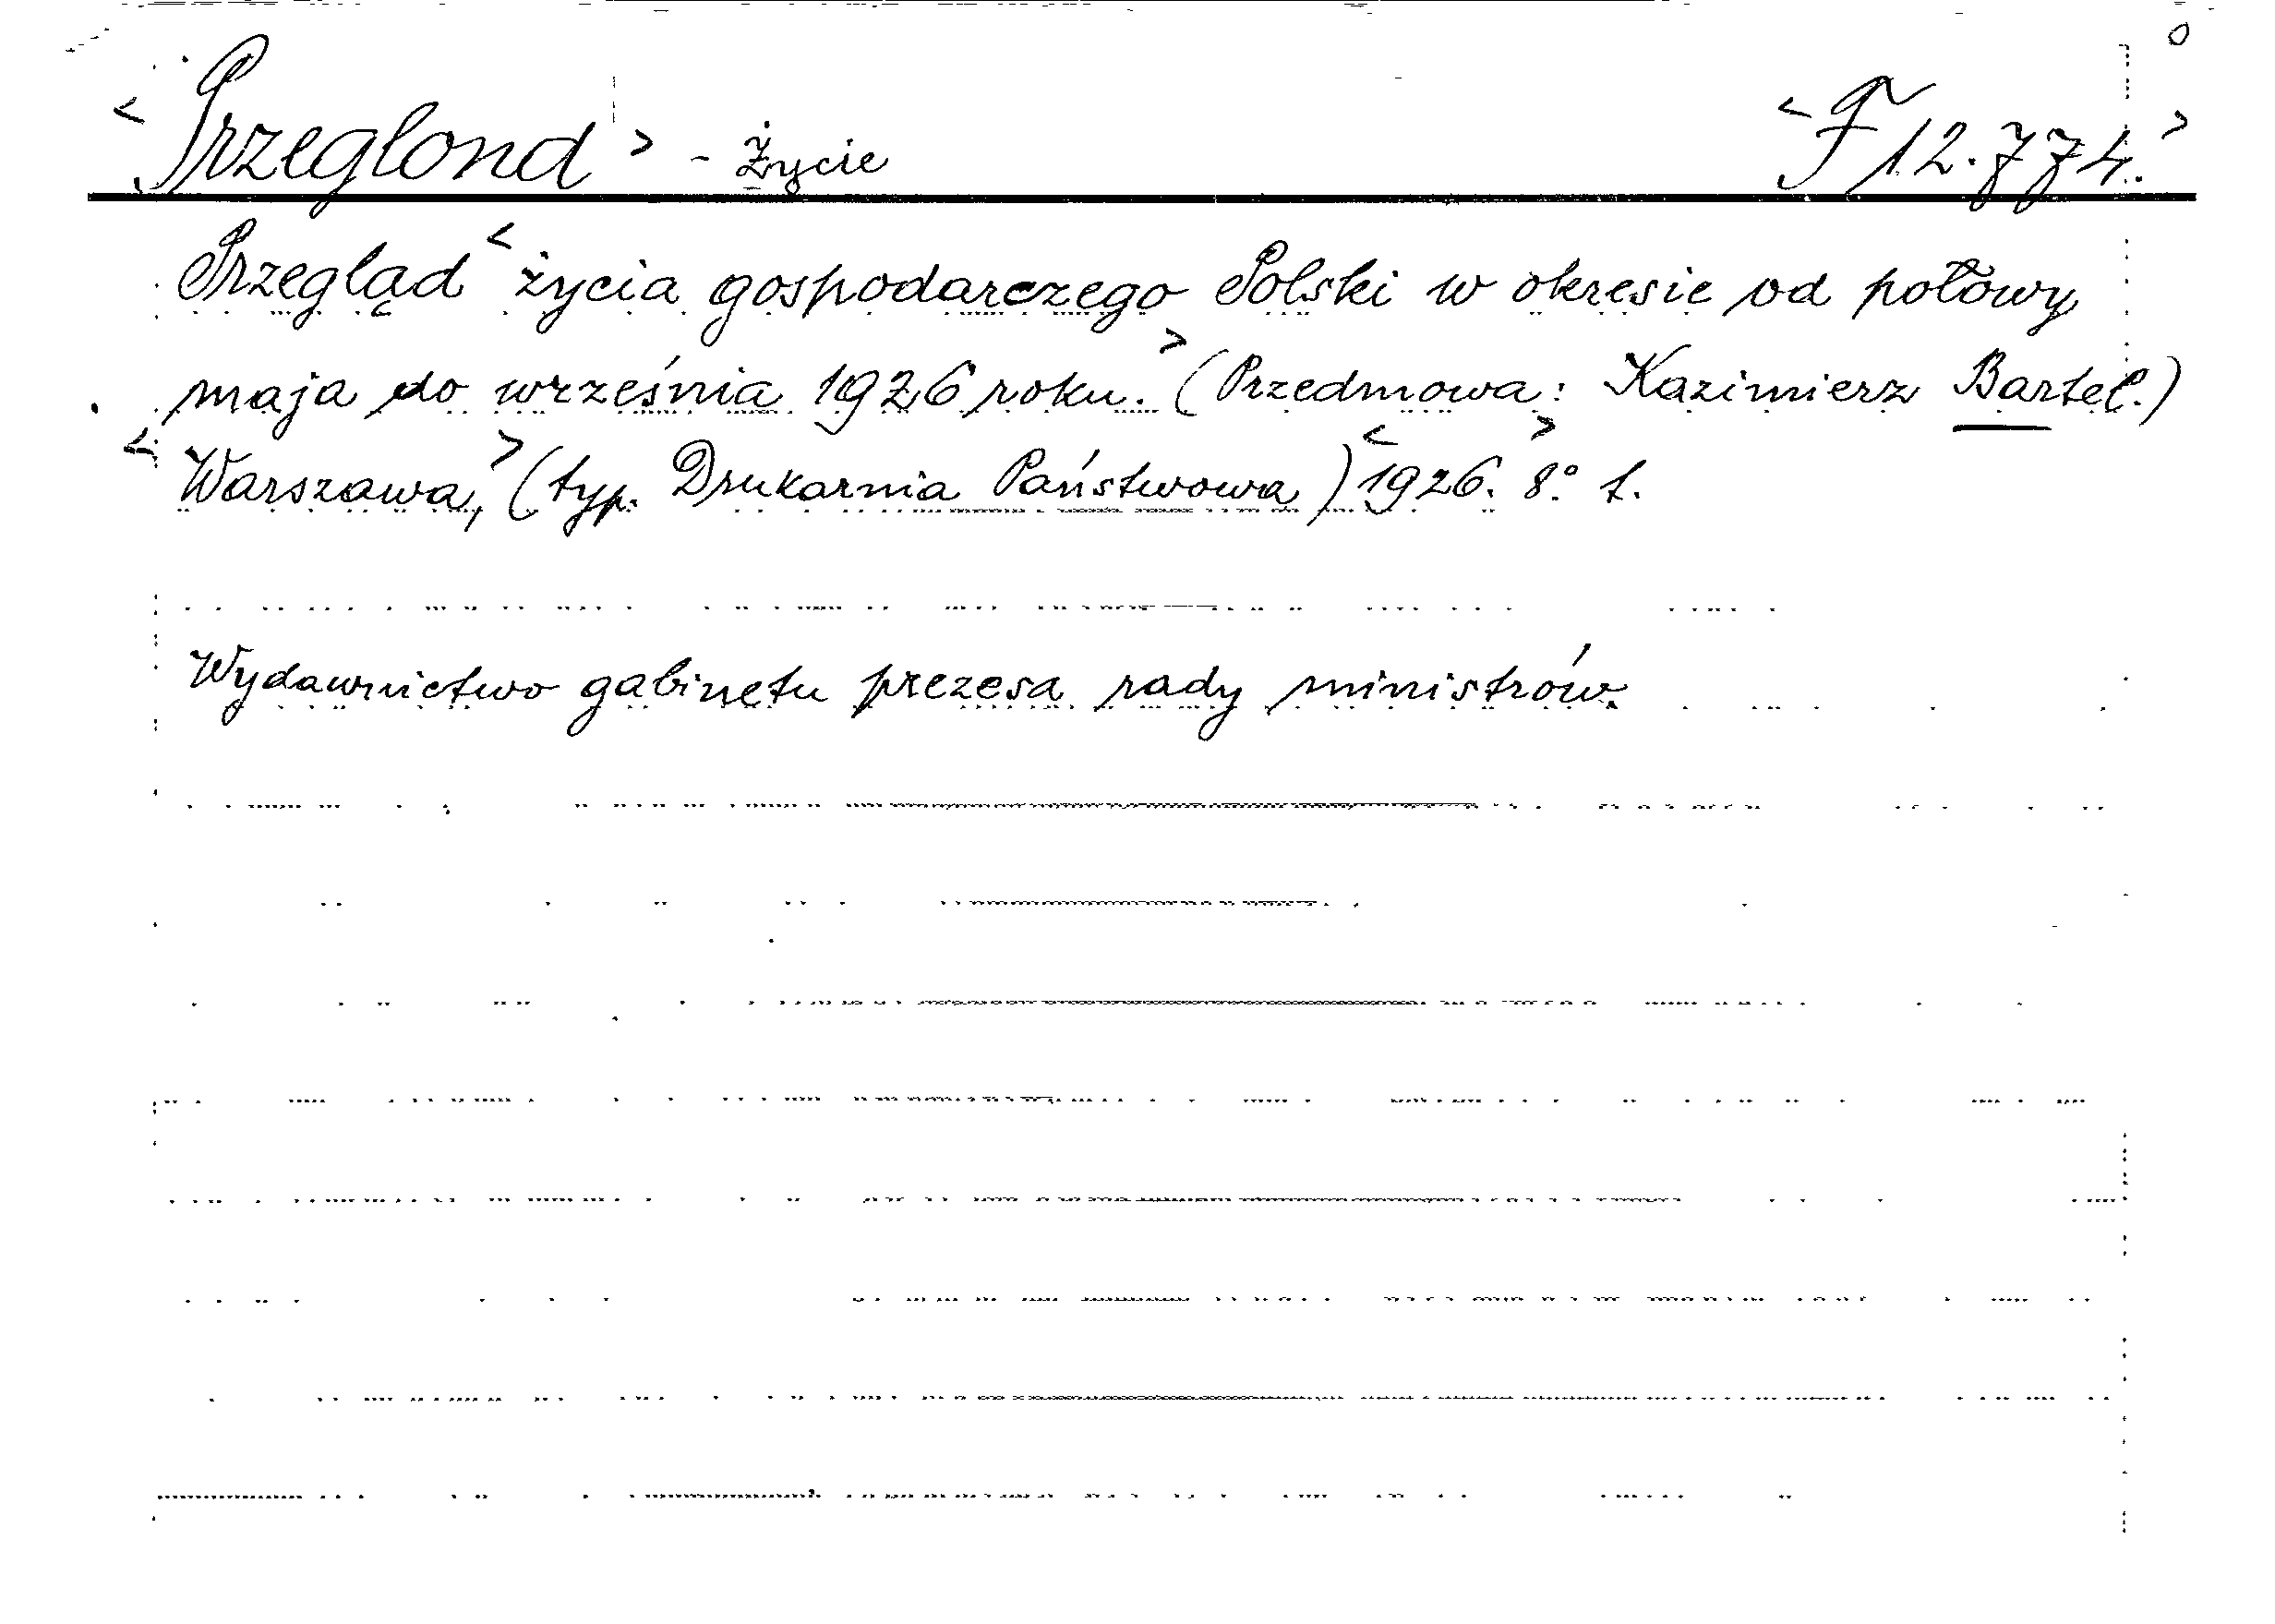 <Przeglond> - Życie <F 12.774.>
Przegląd <życia gospodarczego Polski w okresie od połowy
maja do września 1926 roku.> (Przedmowa: Kazimierz Bartel.)
<Warszawa,> (typ. Drukarnia Państwowa) <1926. 8.°> 1.
Wydawnictwo gabinetu prezesa rady ministrów.